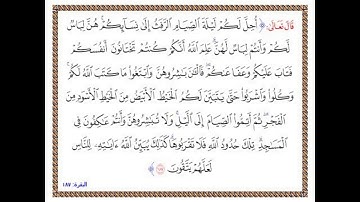 قال تعالى: ﴿ أُحِلَّ لَكُمْ لَيْلَةَ الصِّيَامِ الرَّفَثُ إِلَىٰ نِسَآئِكُمْ ۚ هُنَّ لِبَاسٌ
لَّكُمْ وَأَنتُمْ لِبَاسٌ لَّهُنَّ ۗ عَلِمَ اللَّهُ أَنَّكُمْ كُنتُمْ تَخْتَانُونَ أَنفُسَكُمْ
فَتَابَ عَلَيْكُمْ وَعَفَا عَنكُمْ ۖ فَالْـَٰٔنَ بَـٰشِرُوهُنَّ وَابْتَغُوا۟ مَا كَتَبَ اللَّهُ لَكُمْ ۚ
وَكُلُوا۟ وَاشْرَبُوا۟ حَتَّىٰ يَتَبَيَّنَ لَكُمُ الْخَيْطُ الْأَبْيَضُ مِنَ الْخَيْطِ الْأَسْوَدِ مِنَ
الْفَجْرِ ۖ ثُمَّ أَتِمُّوا۟ الصِّيَامَ إِلَى الَّيْلِ ۚ وَلَا تُبَـٰشِرُوهُنَّ وَأَنتُمْ عَـٰكِفُونَ فِى
الْمَسَـٰجِدِ ۗ تِلْكَ حُدُودُ اللَّهِ فَلَا تَقْرَبُوهَا ۗ كَذَٰلِكَ يُبَيِّنُ اللَّهُ ءَايَـٰتِهِۦ لِلنَّاسِ
لَعَلَّهُمْ يَتَّقُونَ ﴿١٨٧﴾
البقرة: ١٨٧